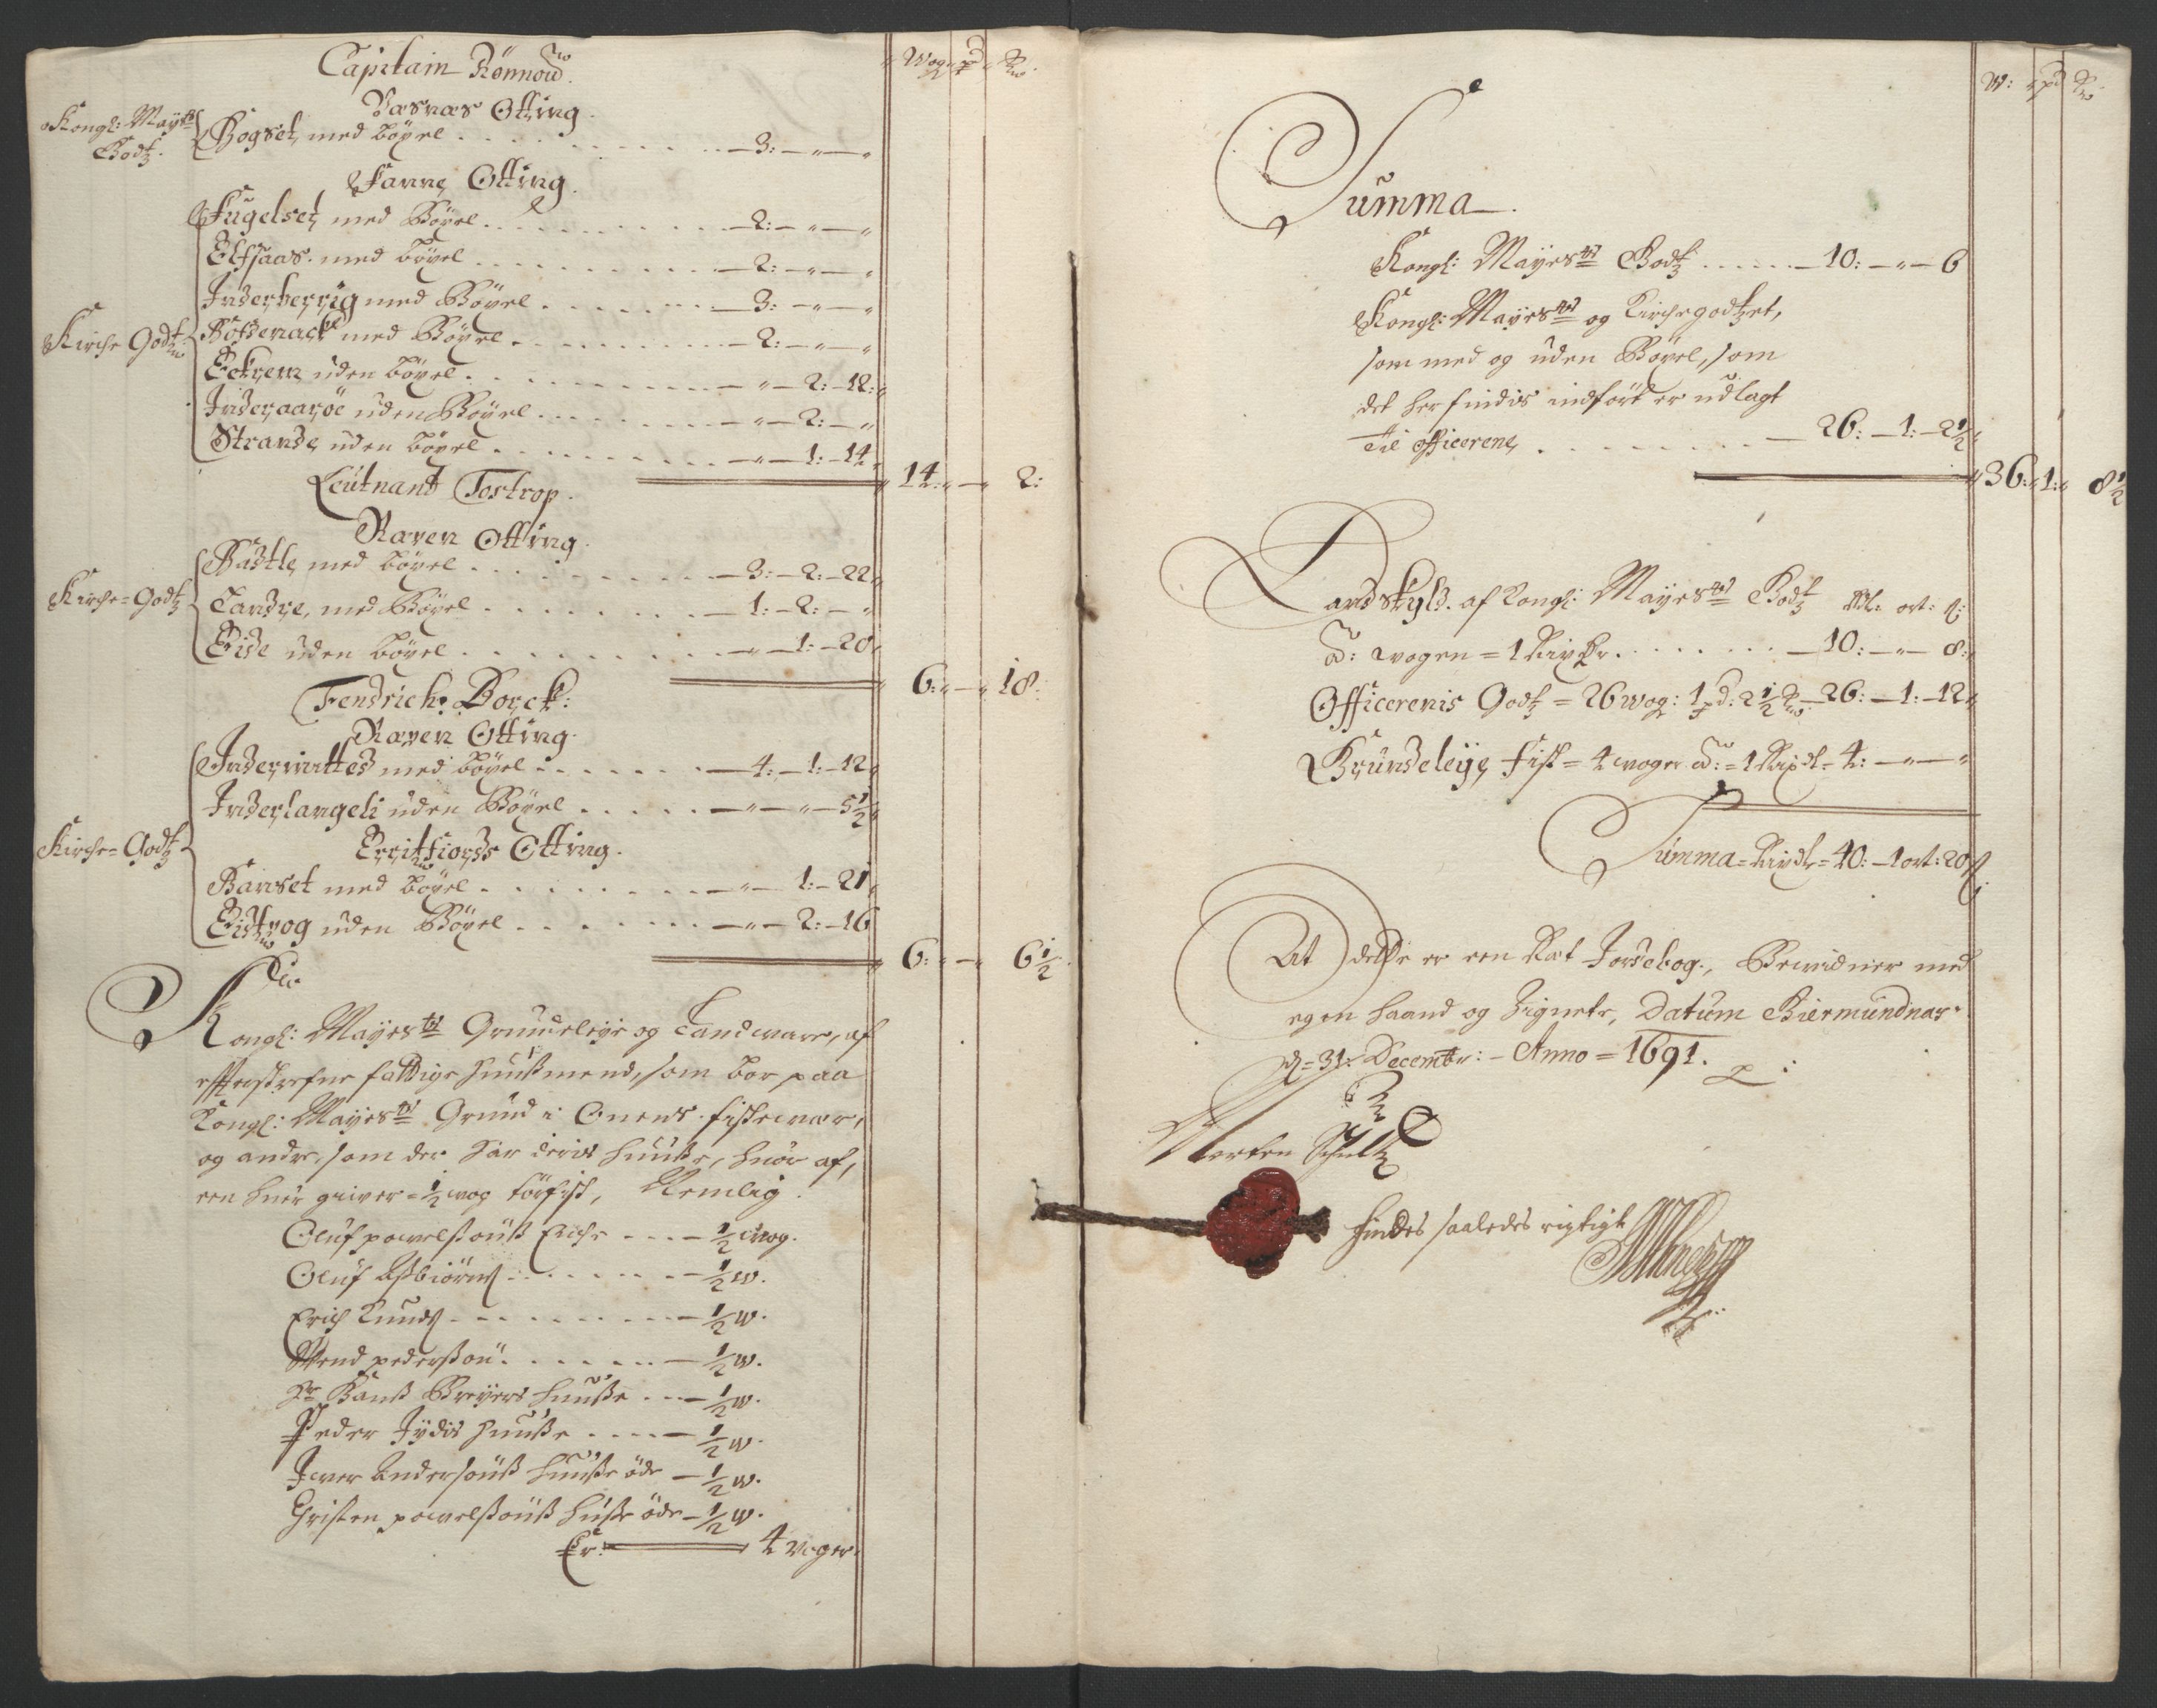 Capitain Rönnow.
Wog: pd mk
Væsnæs Otting.
Kongl: Mayts Godtz.
Bogset, med böxel . . . 3: — „ — „
Fanne Otting.
Fugelset, med Böxel . . . 2: — „ — „
Elfsaas. med böxel . . . 2: — „ — „
Inderberrig med Böxel . . . 3: — „ — „
Kirche Godtz
med Böxel . . . 2: — „ — „
Eckrem uden böxel . . . „ — 2: — 12:
Inderaaröe uden Böxel . . . „ — 2: — „
Strande uden böxel . . . „ — 1: — 14
14: „ — 2:
Leütnant Tostrop.
Røven Otting.
Kirche=Godtz
med böxel . . . 3: — 2: — 22
med Böxel . . . 1: — 2: — „
Eide uden böxel . . . „ — 1: — 20
6: „ — 18:
Fendrich: Borck:
Røven Otting.
med böxel . . . 4: — 1: — 12
Inderlangeli uden Böxel . . . „ — „ — 5½
Kirche=Godtz
Erritfiords Otting.
Barset med böxel . . . „ — 1: — 21
Eistvog uden Böxel . . . „ — 2: — 16
6: „ — 6½
Kongl: Mayestz Grundeleje og Landvare, af
effterskrefne fattige huusmend, som boe paa
Kongl: Mayestz Grund i Onens fiskevær,
og andre, som der har deris huuse, hvor af,
een hver giver = ½ wog törfisk, Nemlig:
Oluf powelsøns Enche . . . ½ wog.
Oluf Asbiörns . . . ½ w.
Erich Knuds . . . ½ w.
Svend pedersøn . . . ½ w.
Hr Hans Breyers huuse . . . ½ w.
Peder Jydis huuse . . . ½ w.
Iver Andersøns huuse öde — ½ w.
Christen powelsøns huse öde — ½ w.
Er: 4 voger.
W: pd mk
Summa.
Kongl: Mayestz Godtz . . . 10: — „ — 6
Kongl: Mayestz og Kirchegodtzet,
som med og uden Böxel, som
det her findis indfört er udlagt
Til officerene . . . 26: — 1: — 2½
36: „ 1: „ 8½
Landskyld. af Kongl: Mayestz Godtz Rdl: ort: s:
â: wogen = 1 Rixdr. . . . 10: — „ — 8:
Officerenis Godtz = 26 wog: 1 pd: 2½ mk — 26: — 1: — 12
Grundeleye Fisk = 4 woger â: = 1 Rixdl = 4: — „ — „
Summa = Rixdr = 40: — 1 ort: 20 s:
At dette er een Ræt Jordebog, Bewidner med
egen haand og Zignete, Datum Biermundnæs
d = 31: Decembr: — Anno = 1691.
Morten Schultz
findes saaledes rigtigt